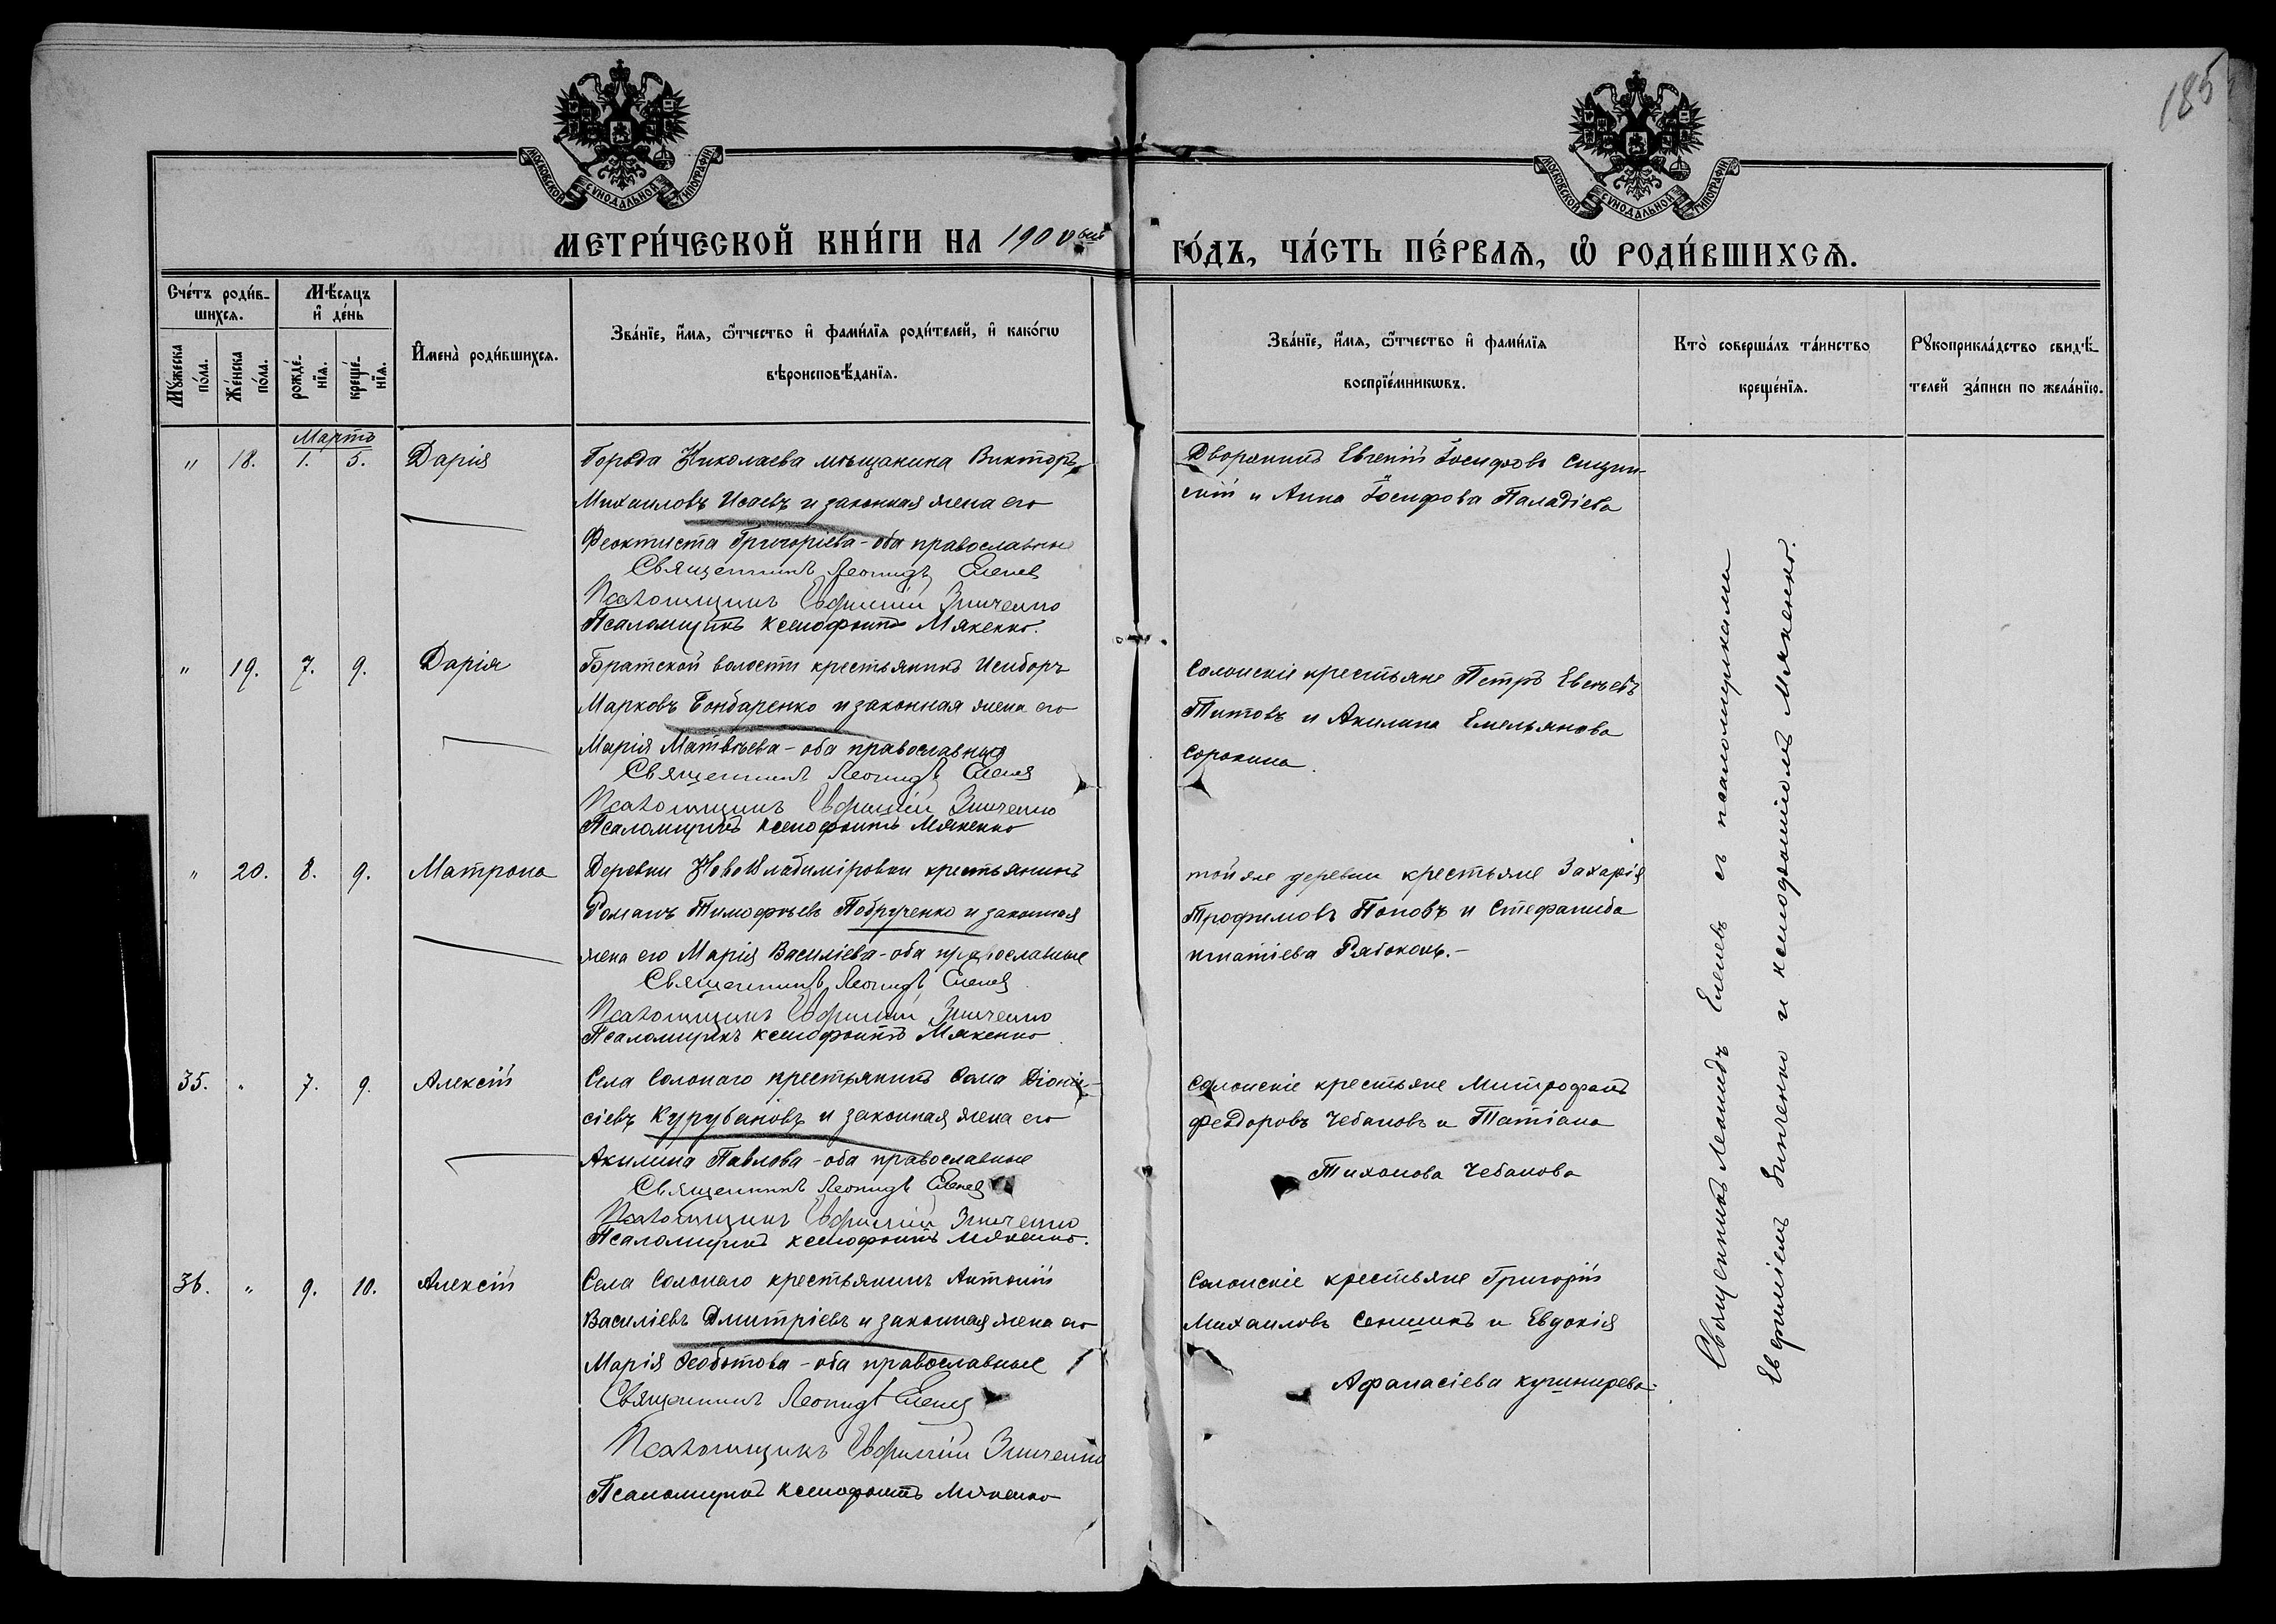 185
МОСКОВСКОЙ СѴНОДАЛЬНОЙ ТИПОГРАФІИ
МОСКОВСКОЙ СѴНОДАЛЬНОЙ ТИПОГРАФІИ
МЕТРИ́ЧЕСКОЙ КНИ́ГИ НА 1900
ГО́ДЪ, ЧА́СТЬ ПЕ́РВАЯ, Ѡ РОДИ́ВШИХСЯ.
Сче́тъ роди́в-
шихся.
Мꙋ́жеска по́ла.
Же́нска по́ла.
Мѣ́сяцъ
и де́нь
рожде́-
нїя.
креще́-
нїя.
Имена̀ роди́вшихся.
Зва́нїе, и́мя, ѻ́тчество и фами́лїя роди́телей, и како́гѡ
вѣроисповѣ́данїя.
Зва́нїе, и́мя, ѻ́тчество и фами́лїя
воспрїе́мникѡвъ.
Кто̀ соверша́лъ та́инство
креще́нїя.
Рꙋкоприкла́дство свидѣ́-
телей за́писи по жела́нїю.
Мартъ
" 18. 1. 5. Дарія
Города Николаева мѣщанина Викторъ
Михаиловъ Исаевъ и законная жена его
Феоктиста Григоріева - оба православные
Священникъ Леонидъ Еленев
Псаломщикъ Евфимій Зинченко
Псаломщикъ Ксенофонтъ Мякенко.
Дворянинъ Евгеній Іосифовъ Сицин-
скій и Анна Іосифова Паладіева
" 19. 7. 9. Дарія
Братской волости крестьянинъ Исидоръ
Марковъ Бондаренко и законная жена его
Марія Матвѣева - оба православныя
Священникъ Леонидъ Еленев
Псаломщикъ Евфимій Зинченко
Псаломщикъ Ксенофонтъ Мякенко
Солонскіе крестьяне Петръ Евсѣевъ
Титовъ и Акилина Емельянова
Сорокина.
" 20. 8. 9. Матрона
Деревни НовоВладиміровки крестьянинъ
Романъ Тимофѣевъ Побрученко и законная
жена его Марія Василіева - оба православные
Священникъ Леонидъ Еленев
Псаломщикъ Евфимій Зинченко
Псаломщикъ Ксенофонтъ Мякенко.
той же деревни крестьяне Захарія
Трофимовъ Поповъ и Стефанида
Игнатіева Рябоконь.-
35. " 7. 9. Алексій
Села Солонаго крестьянинъ Фома Діони-
сіевъ Курубановъ и законная жена его
Акилина Павлова - оба православные
Священникъ Леонидъ Еленев
Псаломщикъ Евфимій Зинченко
Псаломщикъ Ксенофонтъ Мякенко.
Солонскіе крестьяне Митрофанъ
Феодоровъ Чебановъ и Татіана
Тихонова Чебанова
36. " 9. 10. Алексій
Села Солонаго крестьянинъ Антоній
Василіевъ Дмитріевъ и законная жена его
Марія Ѳеодотова - оба православные
Священникъ Леонидъ Еленев
Псаломщикъ Евфимій Зинченко
Псаломщикъ Ксенофонтъ Мякенко
Солонскіе крестьяне Григорій
Михаиловъ Сенишинъ и Евдокія
Афанасіева Кушнирева
Священникъ Леонидъ Еленевъ съ псаломщиками
Евфиміемъ Зинченко и Ксенофонтомъ Мякенко.